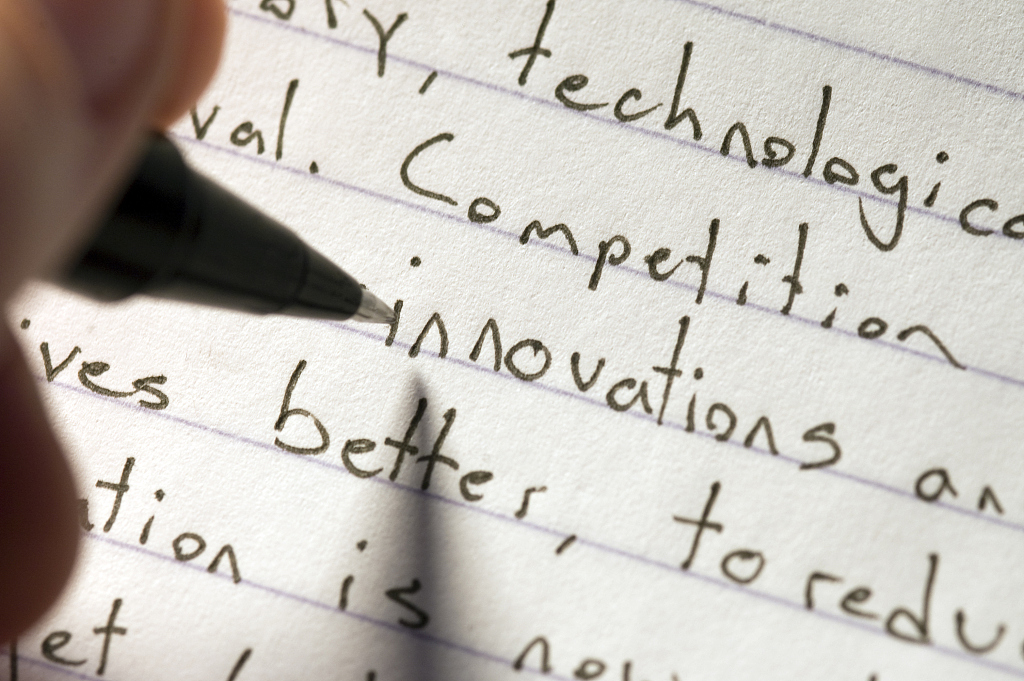 ory, technologica
val. Competition
innovations an
ves better, to redu
ation is now
et